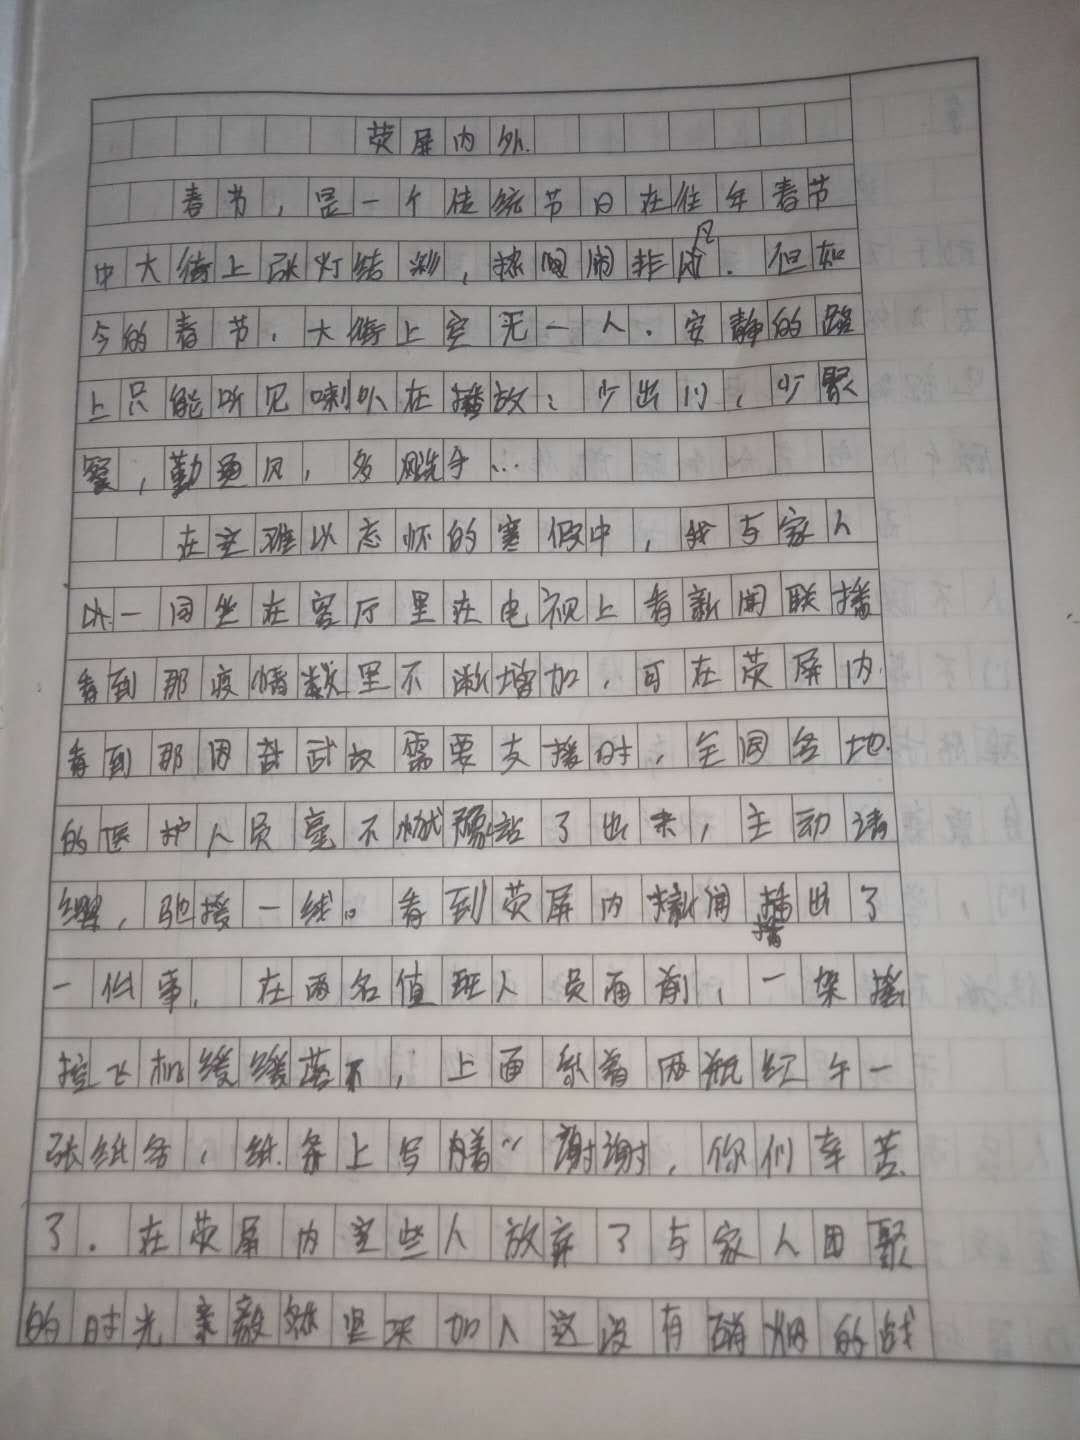 荧屏内外.
春节,是一个传统节日在往年春节
中大街上张灯结彩,热闹非凡.但如
今的春节,大街上空无一人.安静的路
上只能听见喇叭在播放:少出门,少聚
,勤通风,多洗手…
在这难以忘怀的寒假中,我与家人
一同坐在客厅里在电视上看新闻联播
看到那疫情数里不渐增加,可在荧屏内.
看到那因武故需要支援时,全国各地.
的医护人员毫不犹豫站了出来,主动请
缨,驰援一线。看到荧屏内新闻播出了
一件事,在两名值班人员面前,一架摇
控飞机缓缓落下,上面系着两瓶红牛一
张纸条,纸条上写着“谢谢,你们辛苦
了.在荧屏内这些人放弃了与家人团聚
的时光毅然坚决加入这没有硝烟的战